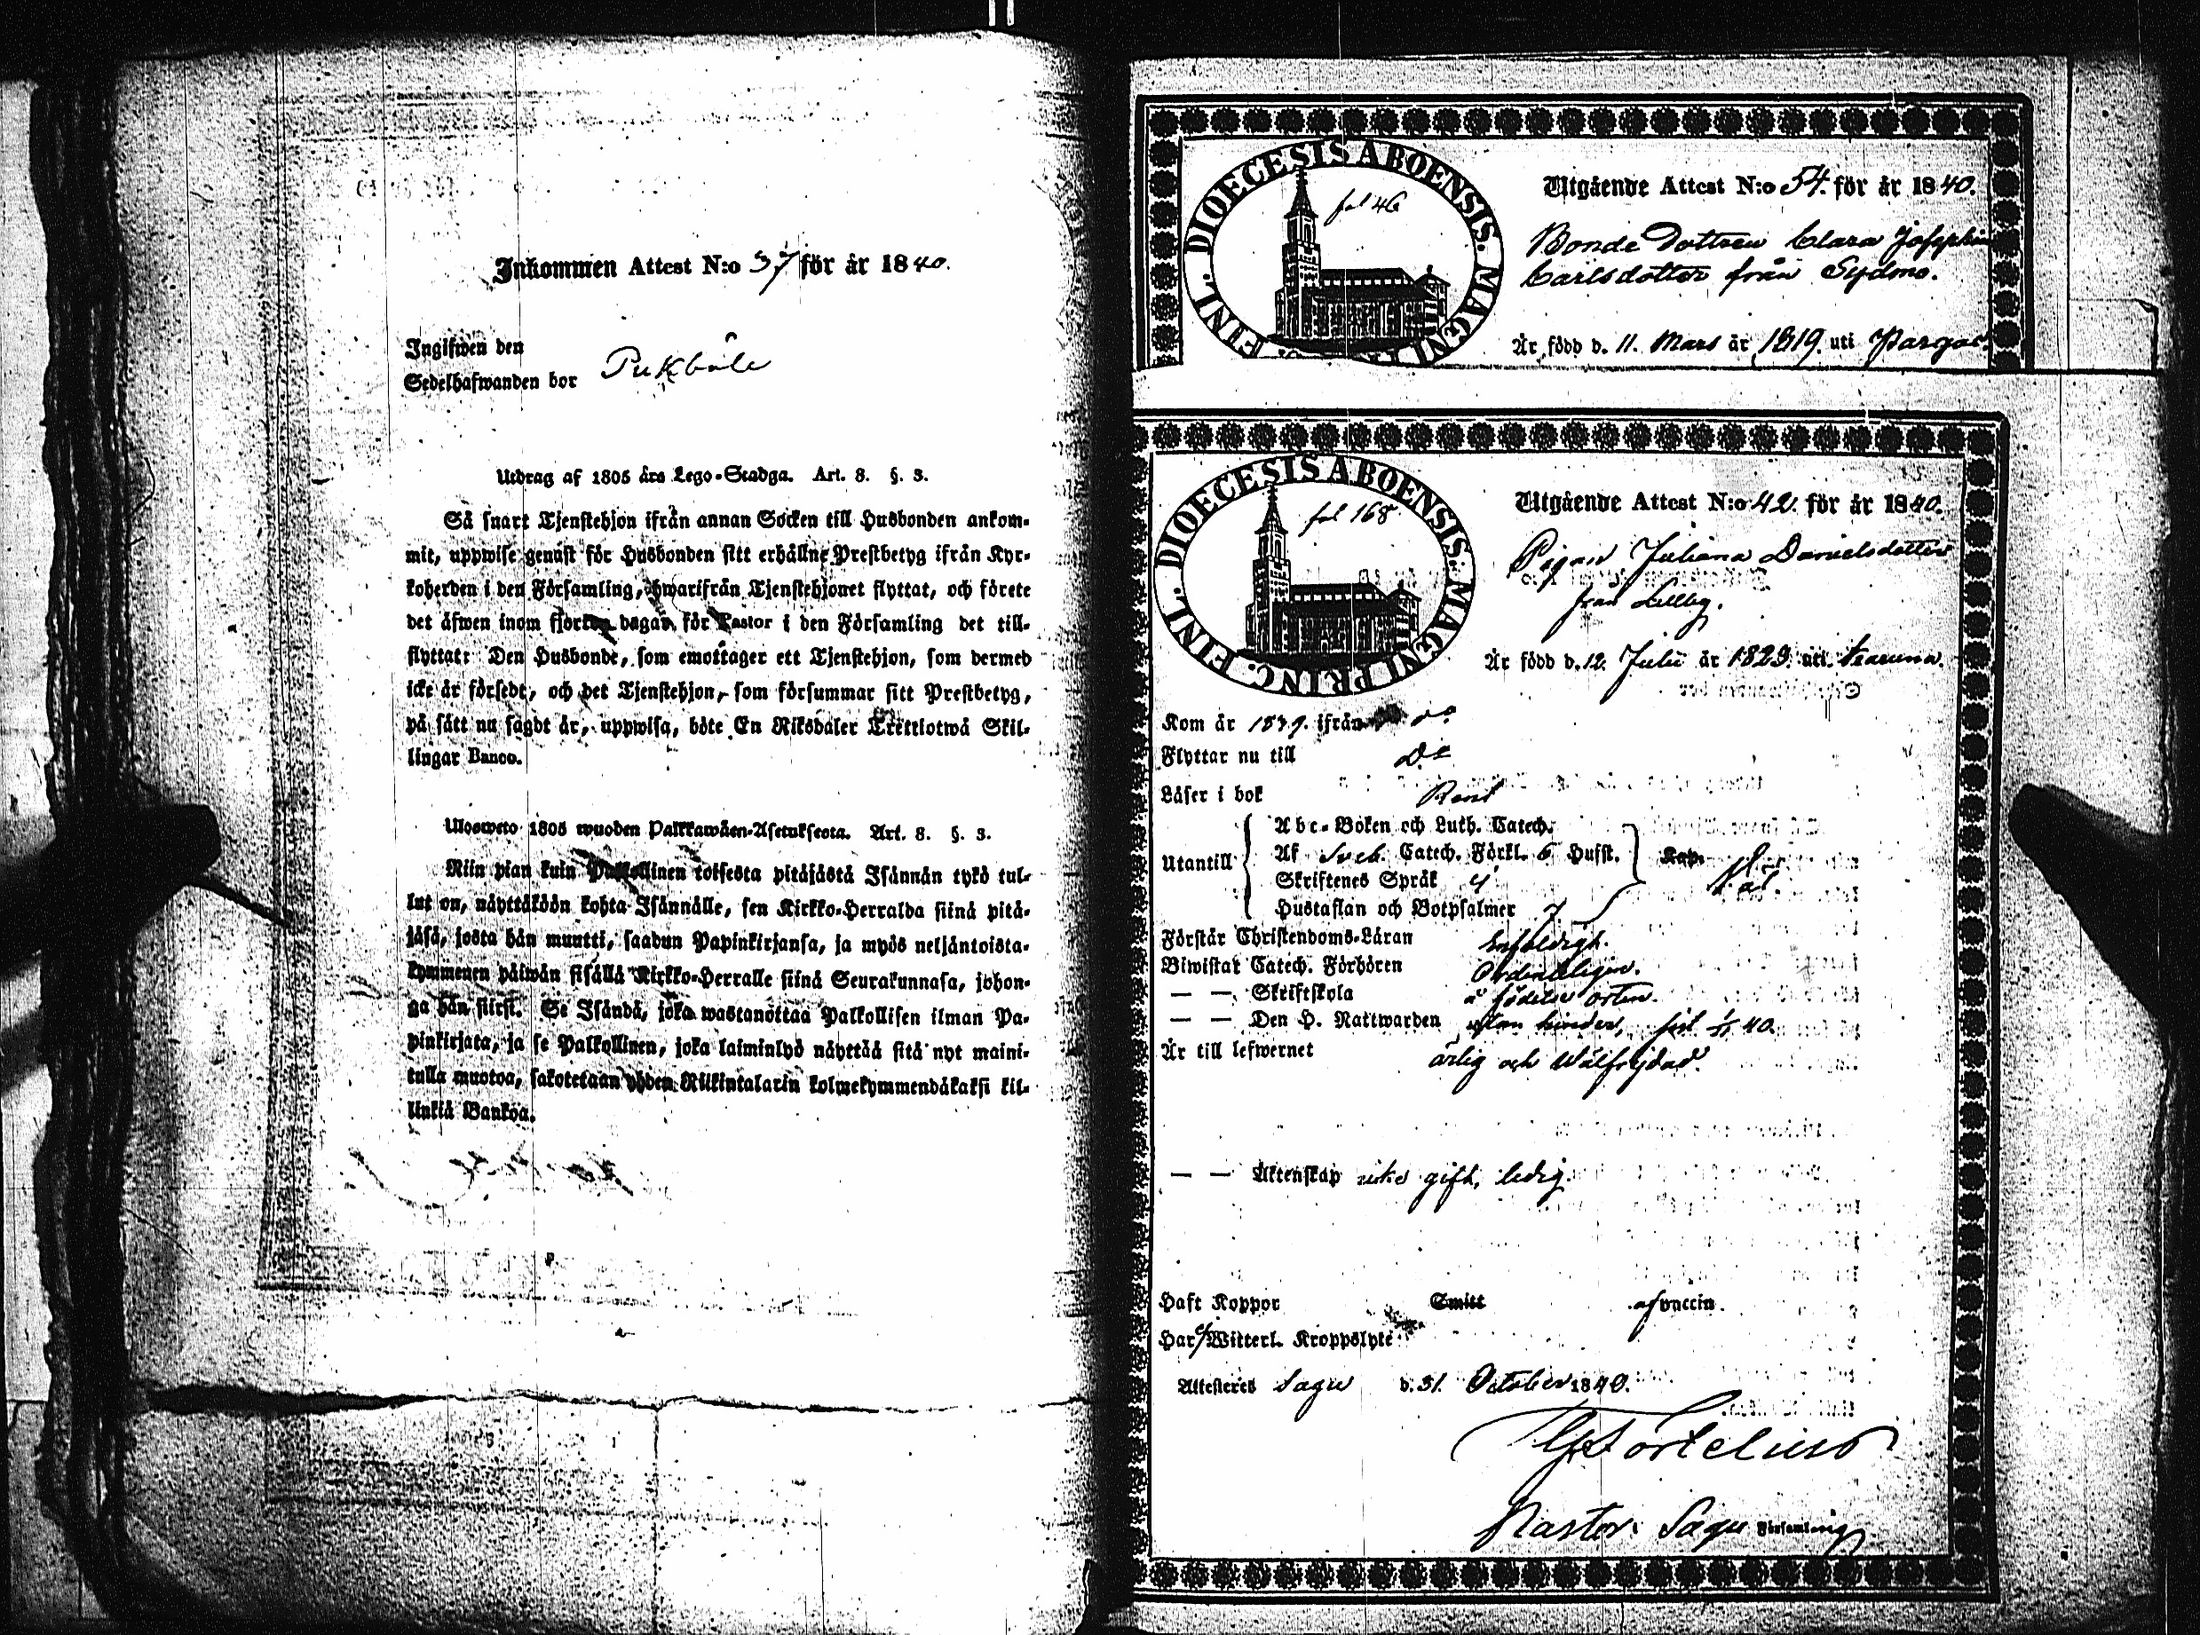 Inkommen Attest N:o 37 för år 1840.
Ingifwen den
Sedelhafwanden bor Pukböle
Utdrag af 1805 års Lego-Stadga. Art. 8. §. 3.
Så snart Tjenstehjon ifrån annan Socken till Husbonden ankom-
mit, uppwise genast för Husbonden sitt erhållne Prestbetyg ifrån Kyr-
koherden i den Församling, hwarifrån Tjenstehjonet flyttat, och förete
det äfwen inom fjorton dagar för Pastor i den Församling det till-
flyttat: Den Husbonde, som emottager ett Tjenstehjon, som dermed
icke är försedt, och det Tjenstehjon, som försummar sitt Prestbetyg,
på sätt nu sagdt är, uppwisa, böte En Riksdaler Trettiotwå Skil-
lingar Banco.
Ulosweto 1805 wuoden Palkkawäen-Asetuksesta. Art. 8. §. 3.
Niin pian kuin Palkollinen toisesta pitäjästä Isännän tykö tul-
lut on, näyttäköön kohta Isännälle, sen Kirkko-Herralda siinä pitä-
jäsä, josta hän muutti, saadun Papinkirjansa, ja myös neljäntoista-
kymmenen päiwän sisällä Kirkko-Herralle siinä Seurakunnasa, johon-
ga hän siirsi. Se Isändä, joka wastanottaa Palkollisen ilman Pa-
pinkirjata, ja se Palkollinen, joka laiminlyö näyttää sitä nyt maini-
tulla muotoa, sakotetaan yhden Riikintalarin kolmekymmendäkaksi kil-
linkiä Bankoa.
DIOECESIS ABOENSIS. MAGNI FINL.
fol 46
Utgående Attest N:o 54. för år 1840.
Bonde Dottren Clara Josephin
Carlsdotter från Sydmo.
Är född d. 11. Mars år 1819. uti Pargas.
DIOECESIS ABOENSIS. MAGNI PRINC. FINL.
fol 168
Utgående Attest N:o 42. för år 1840.
Pigan Juliana Danielsdotter
från Lillby.
Är född d. 12. Julii år 1823. uti
Kom år 1839. ifrån do
Flyttar nu till Do
Läser i bok Rent
Utantill
Abc-Boken och Luth. Catech.
Af Sveb. Catech. Förkl. 6 Hufst.
Skriftenes Språk
Hustaflan och Botpsalmer
Kap.
Förstår Christendoms-Läran enfaldigt.
Biwistat Catech. Förhören Ordenteligen.
— — Skriftskola å födelse orten.
— — Den H. Nattwarden utan hinder, sist 40.
Är till lefwernet ärlig och wälfrejdad.
— — Äktenskap icke gift, ledig.
Haft Koppor Smitt af vaccin.
Har ej Witterl. Kroppslyte
Attesteres Sagu d. 31. October 1840.
Pastor. Sagu Församling